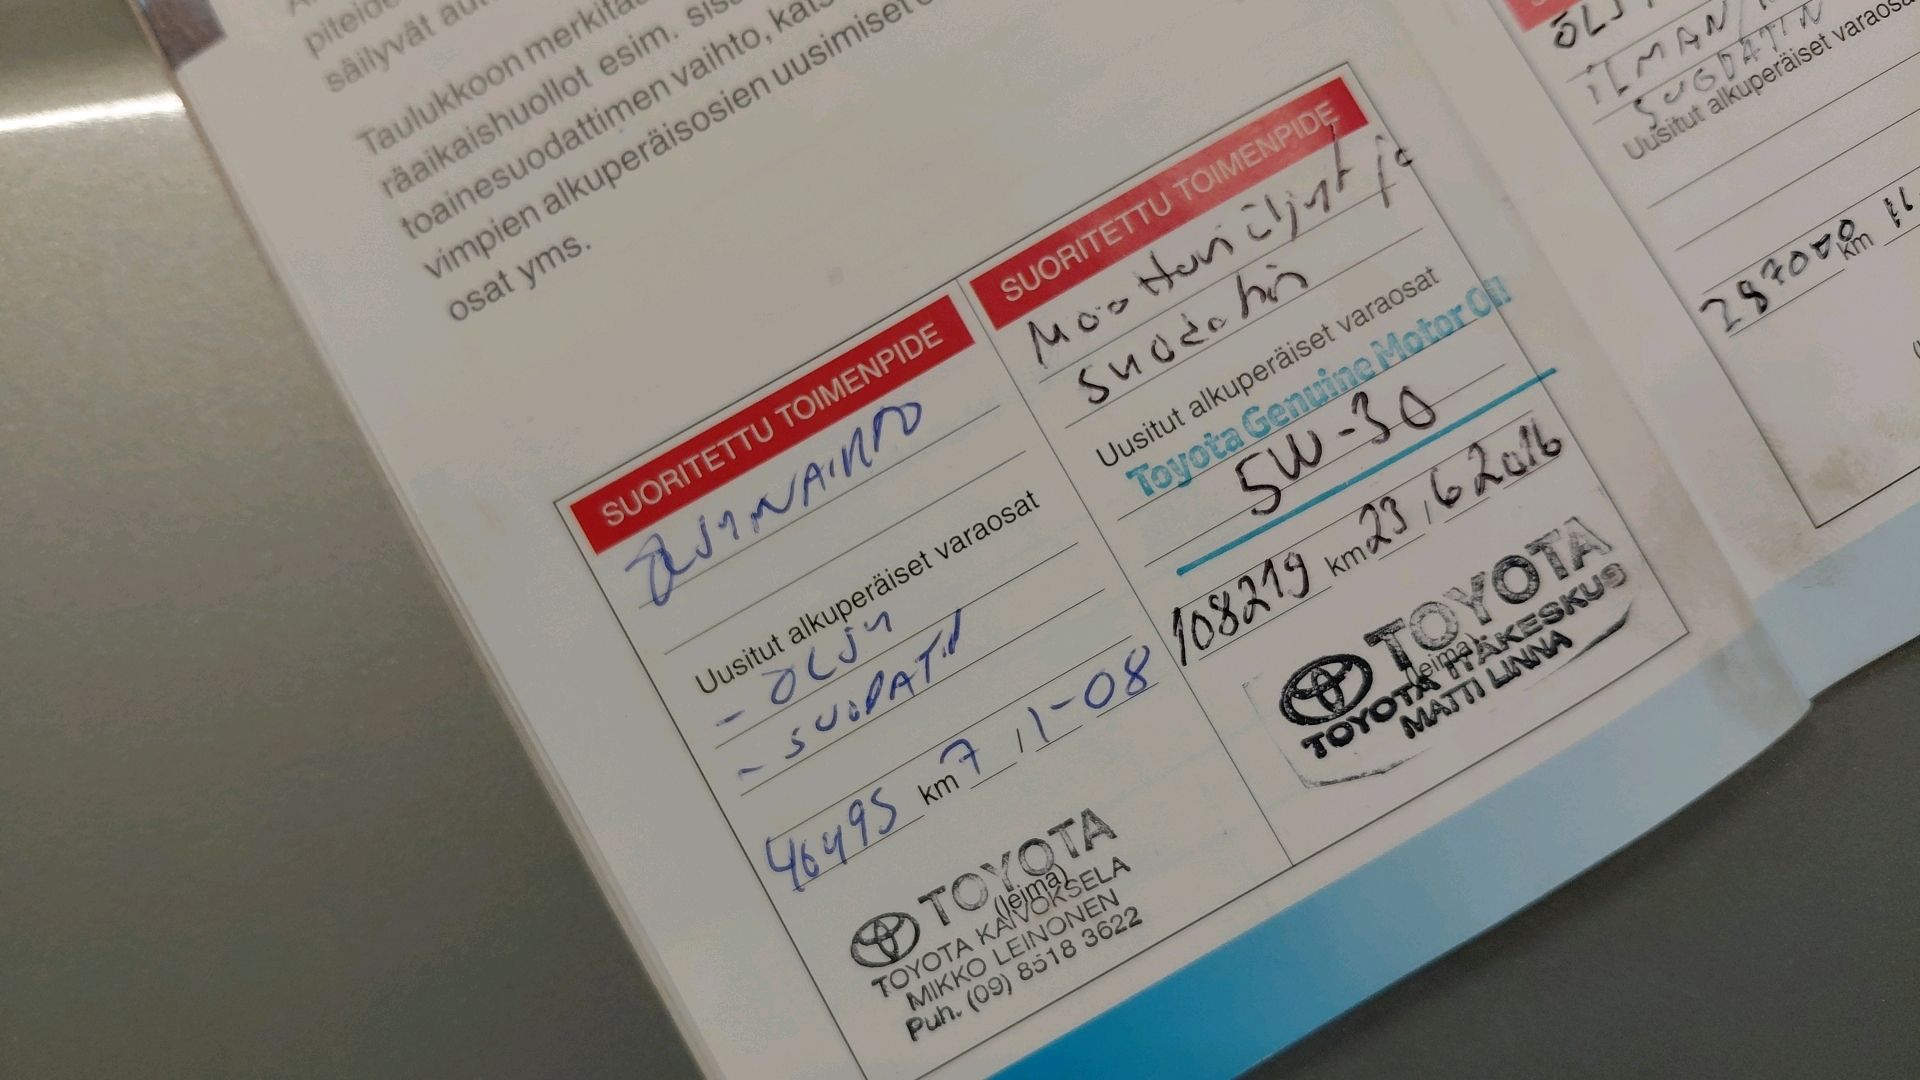 piteide
säilyvät aut
Taulukkoon merkitää
räaikaishuollot esim. sisä
toainesuodattimen vaihto, kats
vimpien alkuperäisosien uusimiset
osat yms.
SUORITETTU TOIMENPIDE
ÖLJYNVAIHTO
Uusitut alkuperäiset varaosat
- ÖLJY
- SUODATIN
46495 km 7 / 1-08
TOYOTA
(leima)
TOYOTA KAIVOKSELA
MIKKO LEINONEN
Puh. (09) 8518 3622
SUORITETTU TOIMENPIDE
Moottoriöljyt ja
suodatin
Uusitut alkuperäiset varaosat
Toyota Genuine Motor Oil
5W-30
108219 km 23 / 6 2016
TOYOTA
(leima)
TOYOTA ITÄKESKUS
MATTI LINNA
ILMAN/
SUODATIN
Uusitut alkuperäiset varaosa
287000 km 11